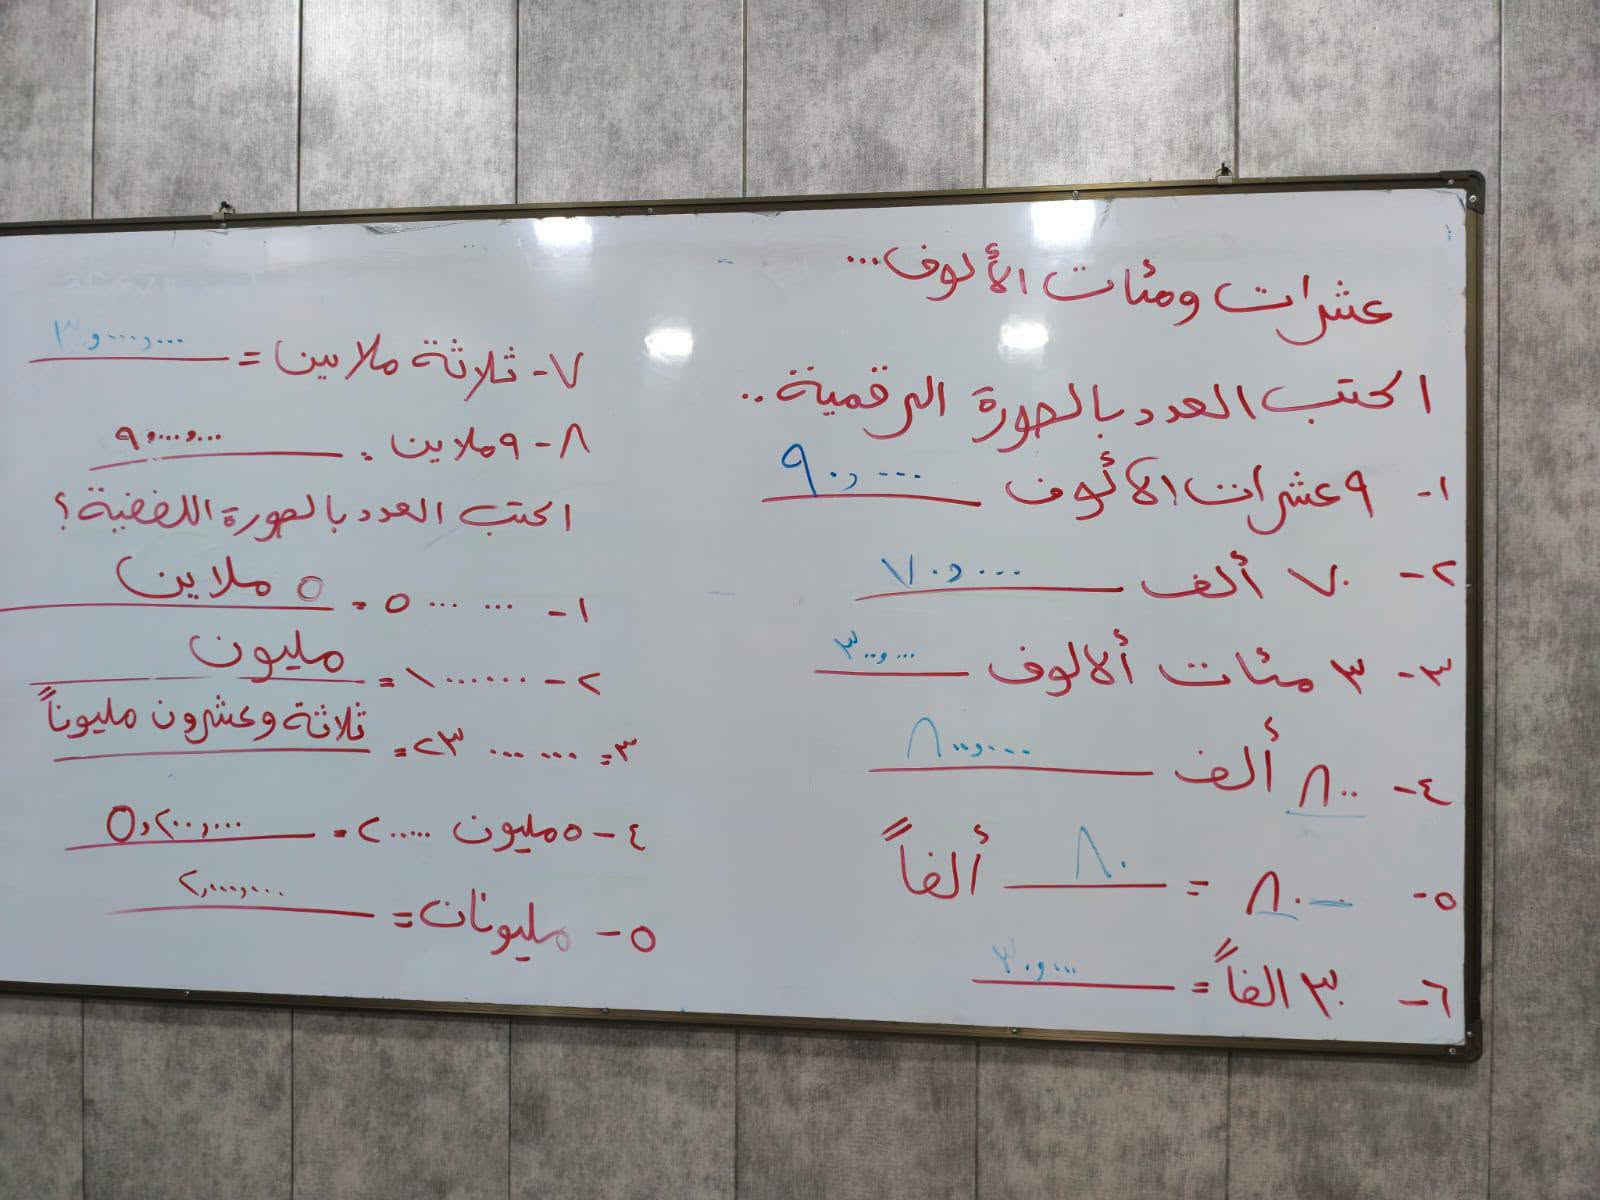 عشرات ومئات الألوف...
اكتب العدد بالصورة الرقمية..
١- ٩ عشرات الألوف ٩٠,٠٠٠
٢- ٧٠ ألف ٧٠,٠٠٠
٣- ٣ مئات ألالوف ٣٠٠,٠٠٠
٤- ٨٠٠ ألف ٨٠٠,٠٠٠
٥- ٨٠٠٠٠ = ٨٠ ألفاً
٦- ٣٠ الفاً = ٣٠,٠٠٠
٧- ثلاثة ملايين = ٣,٠٠٠,٠٠٠
٨- ٩ ملاين = ٩,٠٠٠,٠٠٠
اكتب العدد بالصورة اللفضية؟
١- ٥٠٠٠٠٠٠ = ٥ ملاين
٢- ١٠٠٠٠٠٠ = مليون
٣- ٢٣٠٠٠٠٠٠ = ثلاثة وعشرون مليوناً
٤- ٥ مليون ٢٠٠٠٠٠ = ٥,٢٠٠,٠٠٠
٥- مليونان = ٢,٠٠٠,٠٠٠